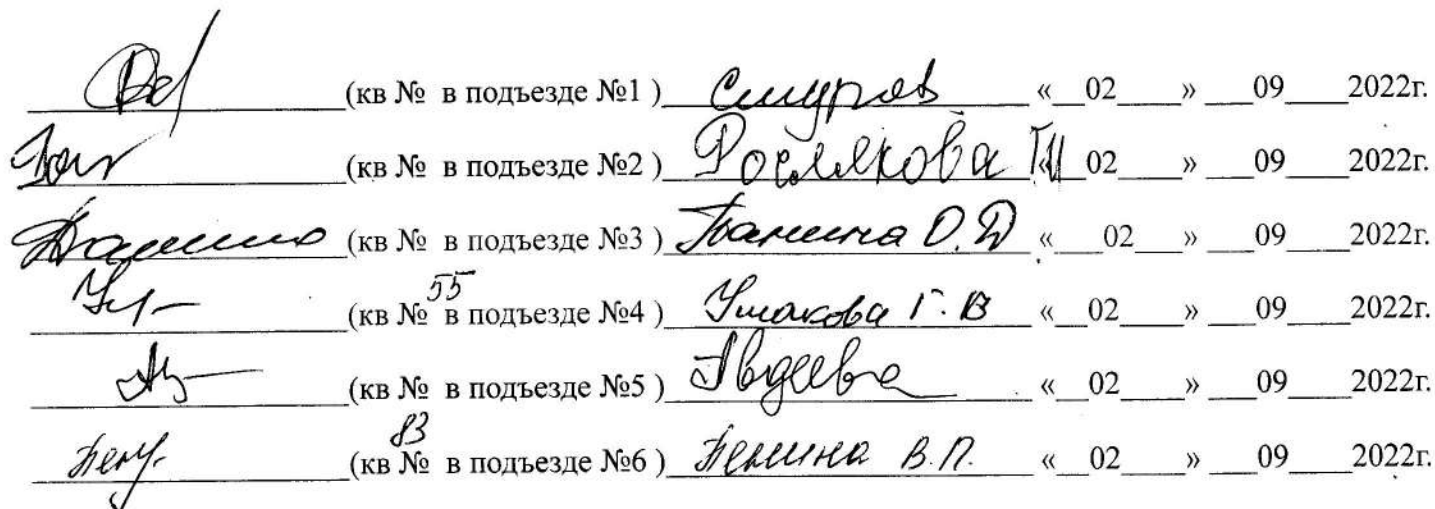 (кв № в подъезде №1 ) Смуров « 02 » 09 2022г.
(кв № в подъезде №2 ) Рослякова « 02 » 09 2022г.
(кв № в подъезде №3 ) Панина О.Д « 02 » 09 2022г.
(кв № 55 в подъезде №4 ) Ушакова Г.В « 02 » 09 2022г.
(кв № в подъезде №5 ) Авдеева « 02 » 09 2022г.
(кв № 83 в подъезде №6 ) В.П. « 02 » 09 2022г.